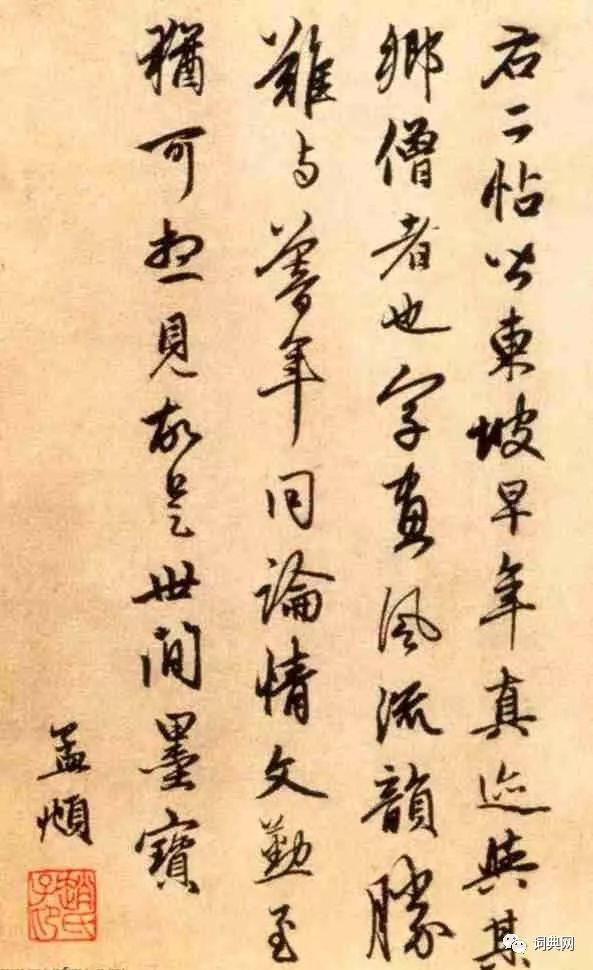 右二帖皆東坡早年真迹與其
鄉僧者也字畫風流韻勝
難与暮年同論情文勤至
猶可想見故是世間墨寶
孟頫
趙氏子印
词典网